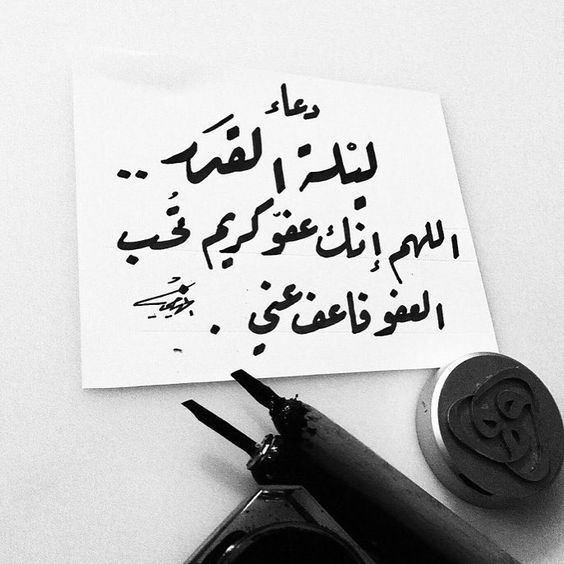 دعاء
ليْلة القَدر ..
اللهم إنك عفوّ كريم تُحب
العفو فاعف عني .